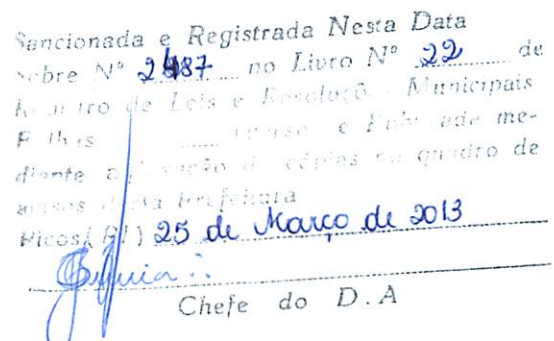 Sancionada e Registrada Nesta Data
sobre Nº 2487 no Livro Nº 22 de
de Leis e Resoluções Municipais
e me-
diante de cópias no quadro de
avisos desta Prefeitura
Picos(PI) 25 de Março de 2013
Chefe do D.A